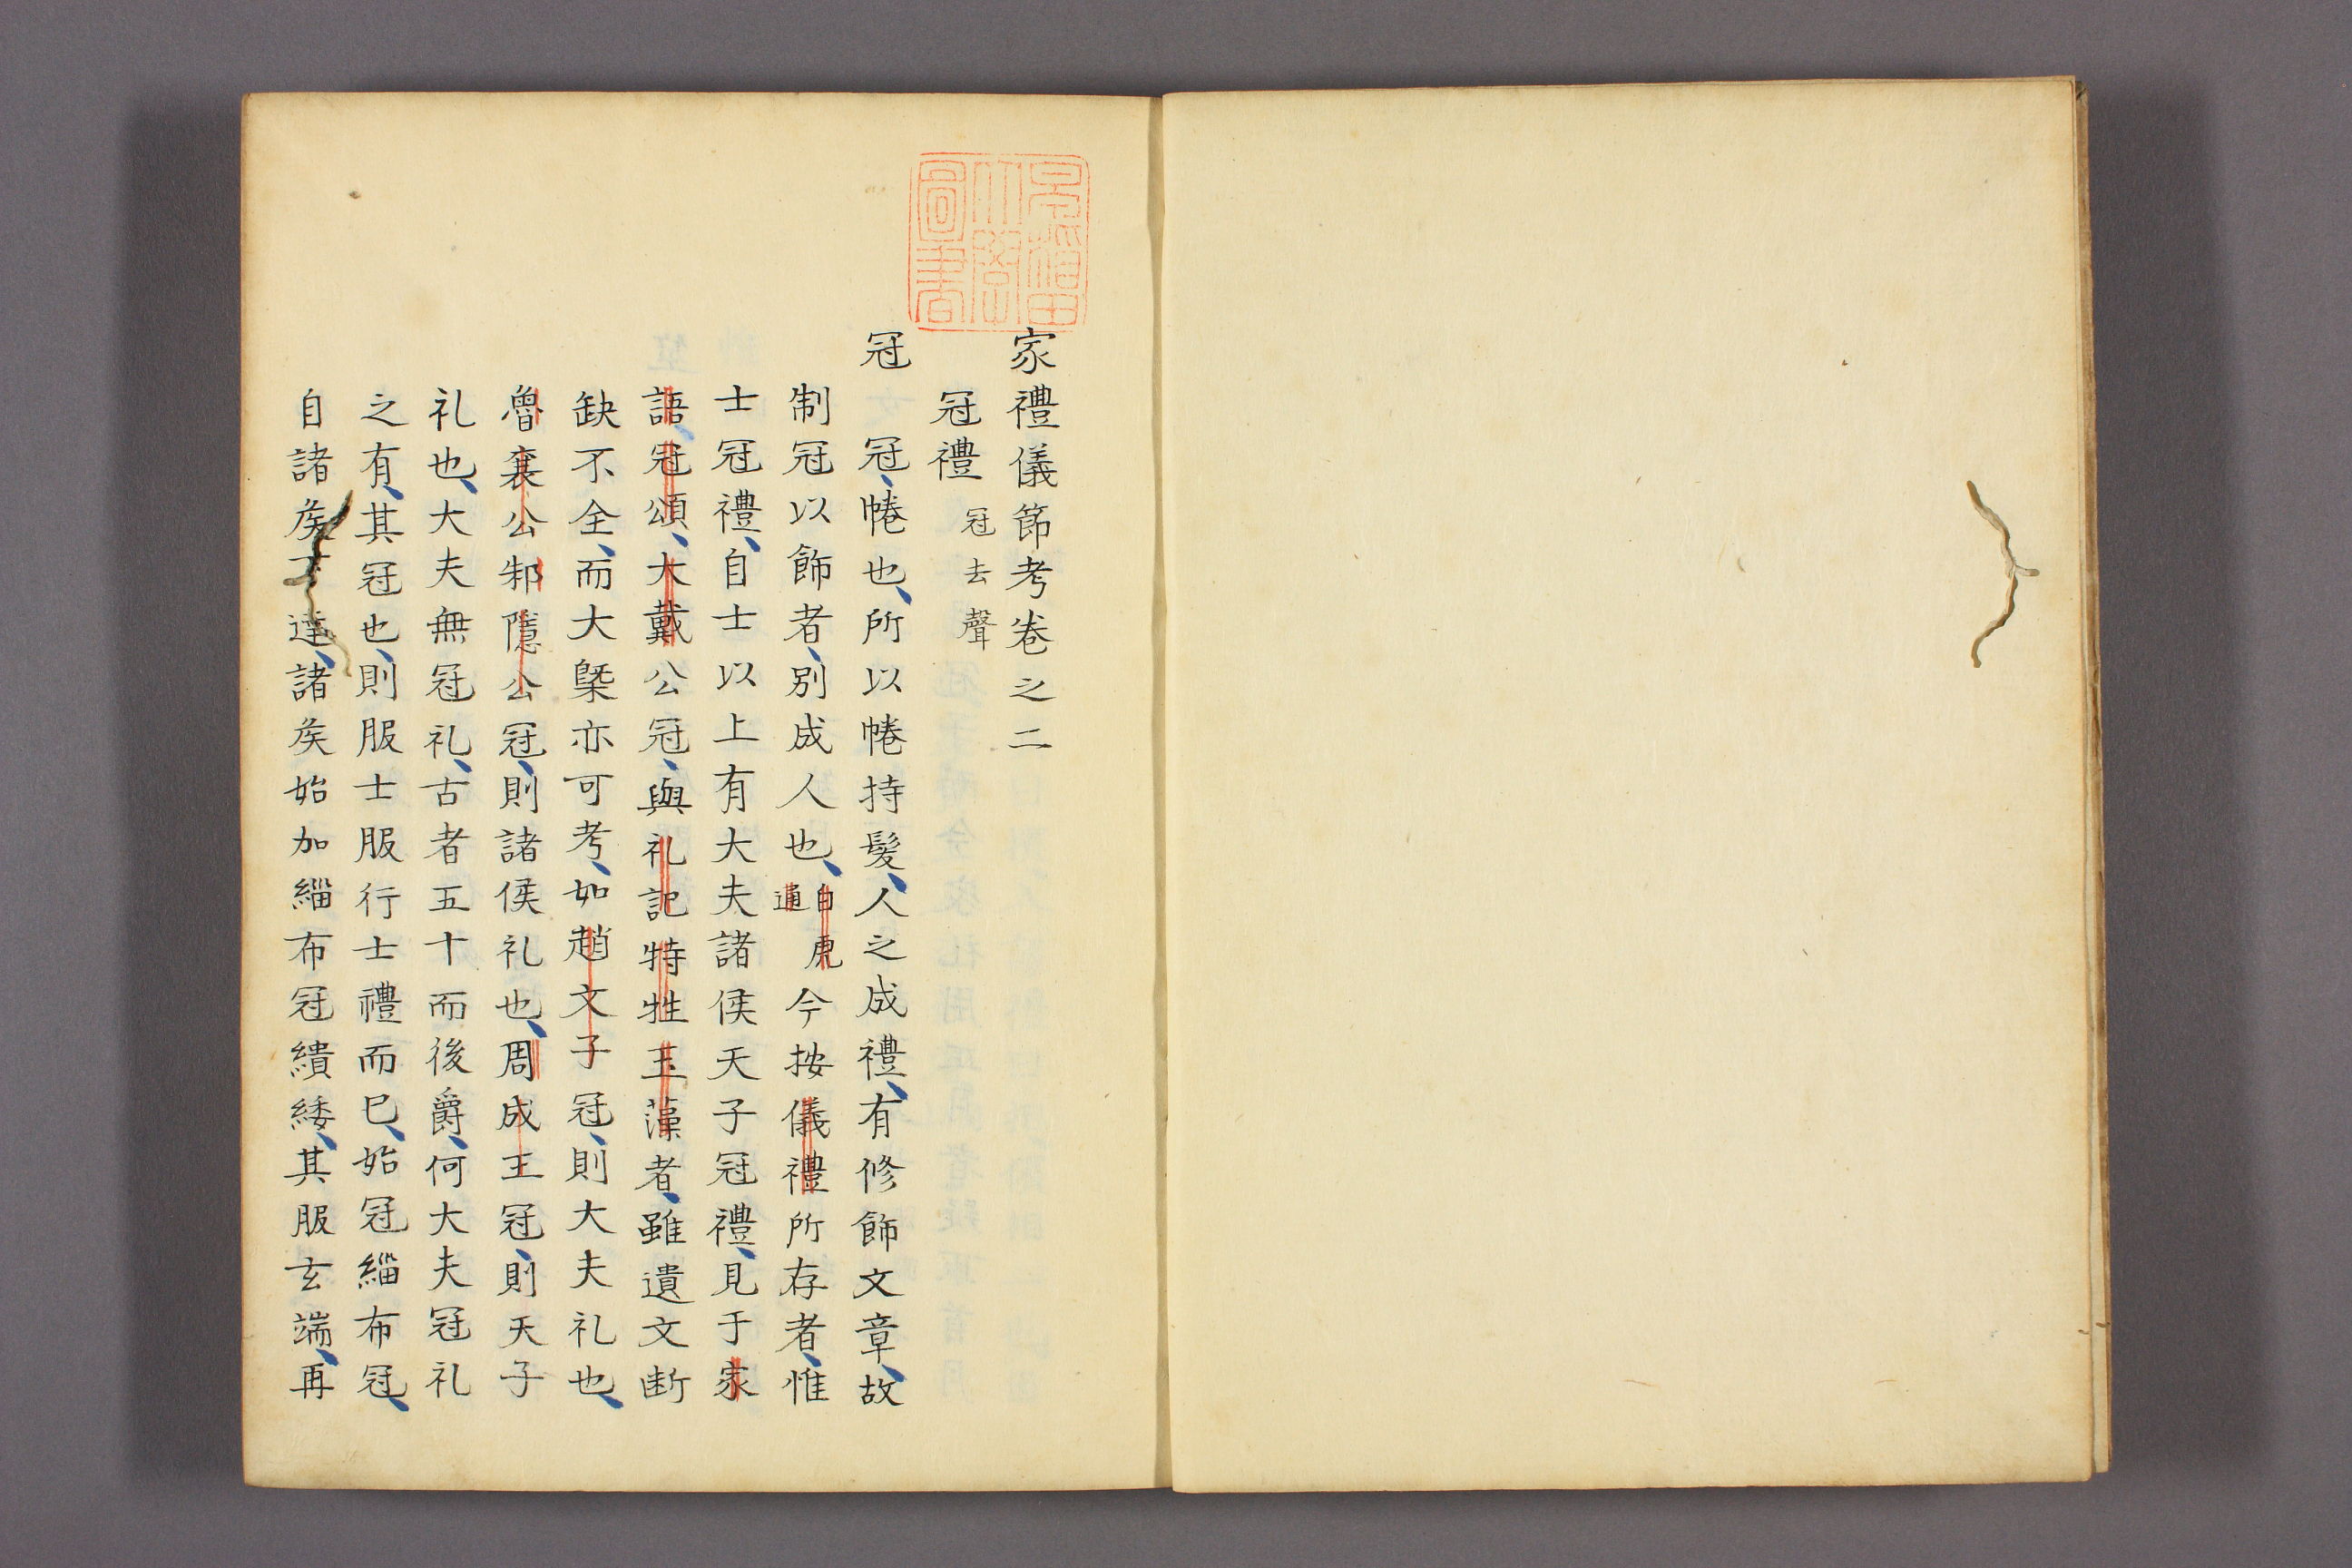 早稲田大學圖書
家禮儀節考卷之二
冠禮 冠去聲
冠
冠、帣也、所以帣持髮、人之成禮、有修飾文章、故
制冠以飾者、別成人也、白虎通 今按儀禮所存者、惟
士冠禮、自士以上有大夫諸侯天子冠禮、見于家
語、冠頌、大戴公冠、與礼記特牲玉藻者、雖遺文断
缺不全、而大槩亦可考、如趙文子冠、則大夫礼也、
魯襄公邾隱公冠、則諸侯礼也、周成王冠、則天子
礼也、大夫無冠礼、古者五十而後爵、何大夫冠礼
之有、其冠也、則服士服行士禮而已、始冠緇布冠、
自諸矦下達、諸矦始加緇布冠繢緌、其服玄端、再